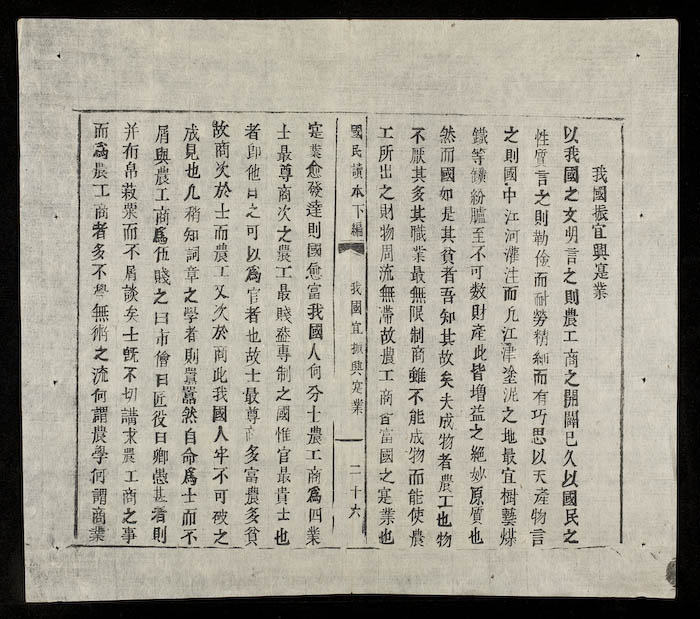 我國振宜興寔業
以我國之文明言之則農工商之開闢已久以國民之
性質言之則勤儉而耐勞精細而有巧思以天產物言
之則國中江河灌注而凡江津塗泥之地最宜樹藝煤
鐵等鑛紛臚至不可數財產此皆增益之絕妙原質也
然而國如是其貧者吾知其故矣夫成物者農工也物
不厭其多其職業最無限制商雖不能成物而能使農
工所出之財物周流無滯故農工商皆富國之寔業也
國民讀本下編 我國宜振興寔業 二十六
寔業愈發達則國愈富我國人向分士農工商爲四業
士最尊商次之農工最賤盖專制之國惟官最貴士也
者即他日之可以爲官者也故士最尊商多富農多貧
故商次於士而農工又次於商此我國人牢不可破之
成見也凡稍知詞章之學者則囂囂然自命爲士而不
屑與農工商爲伍賤之曰市儈曰匠役曰鄉愚甚者則
并布帛菽粟而不屑談矣士旣不切講求農工商之事
而爲農工商者多不學無術之流何謂農學何謂商業